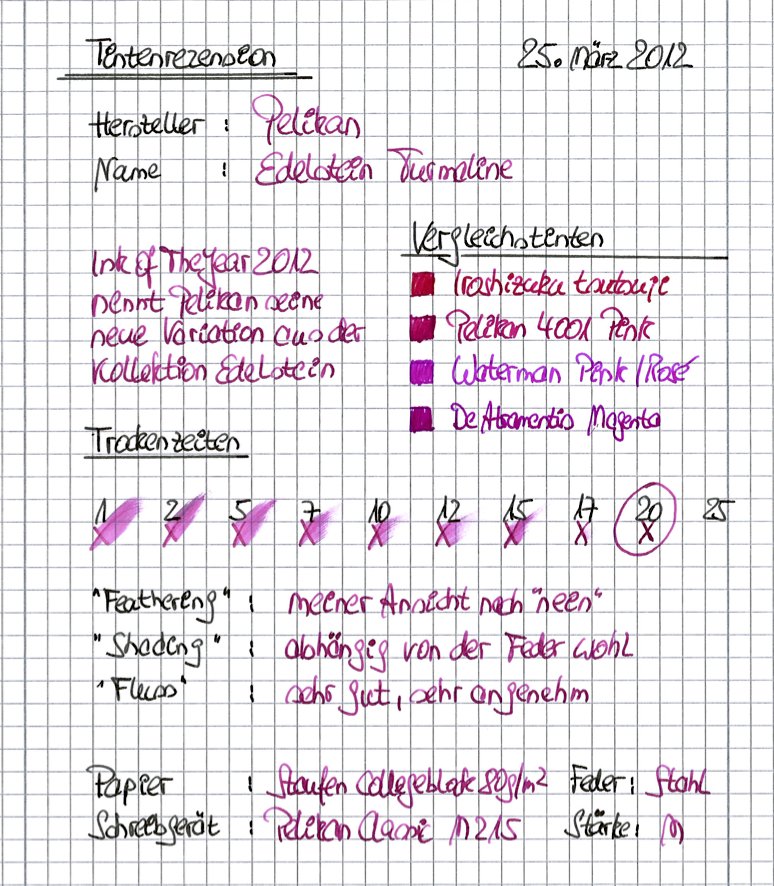 Tintenrezension 25. März 2012
Hersteller : Pelikan
Name : Edelstein Turmaline
Vergleichstinten
Ink of The Year 2012
nennt Pelikan seine
neue Variation aus der
Kollektion Edelstein
Iroshizuku tsutsuji
Pelikan 4001 Pink
Waterman Pink / Rosé
De Atramentis Magenta
Trockenzeiten
1 2 5 7 10 12 15 17 20 25
x x x x x x x x x
"Feathering" : meiner Ansicht nach "neen"
"Shading" : abhängig von der Feder wohl
"Fluss" : sehr gut, sehr angenehm
Papier : Staufen Collegeblock 80g/m² Feder : Stahl
Schreibgerät : Pelikan Classic M215 Stärke : M